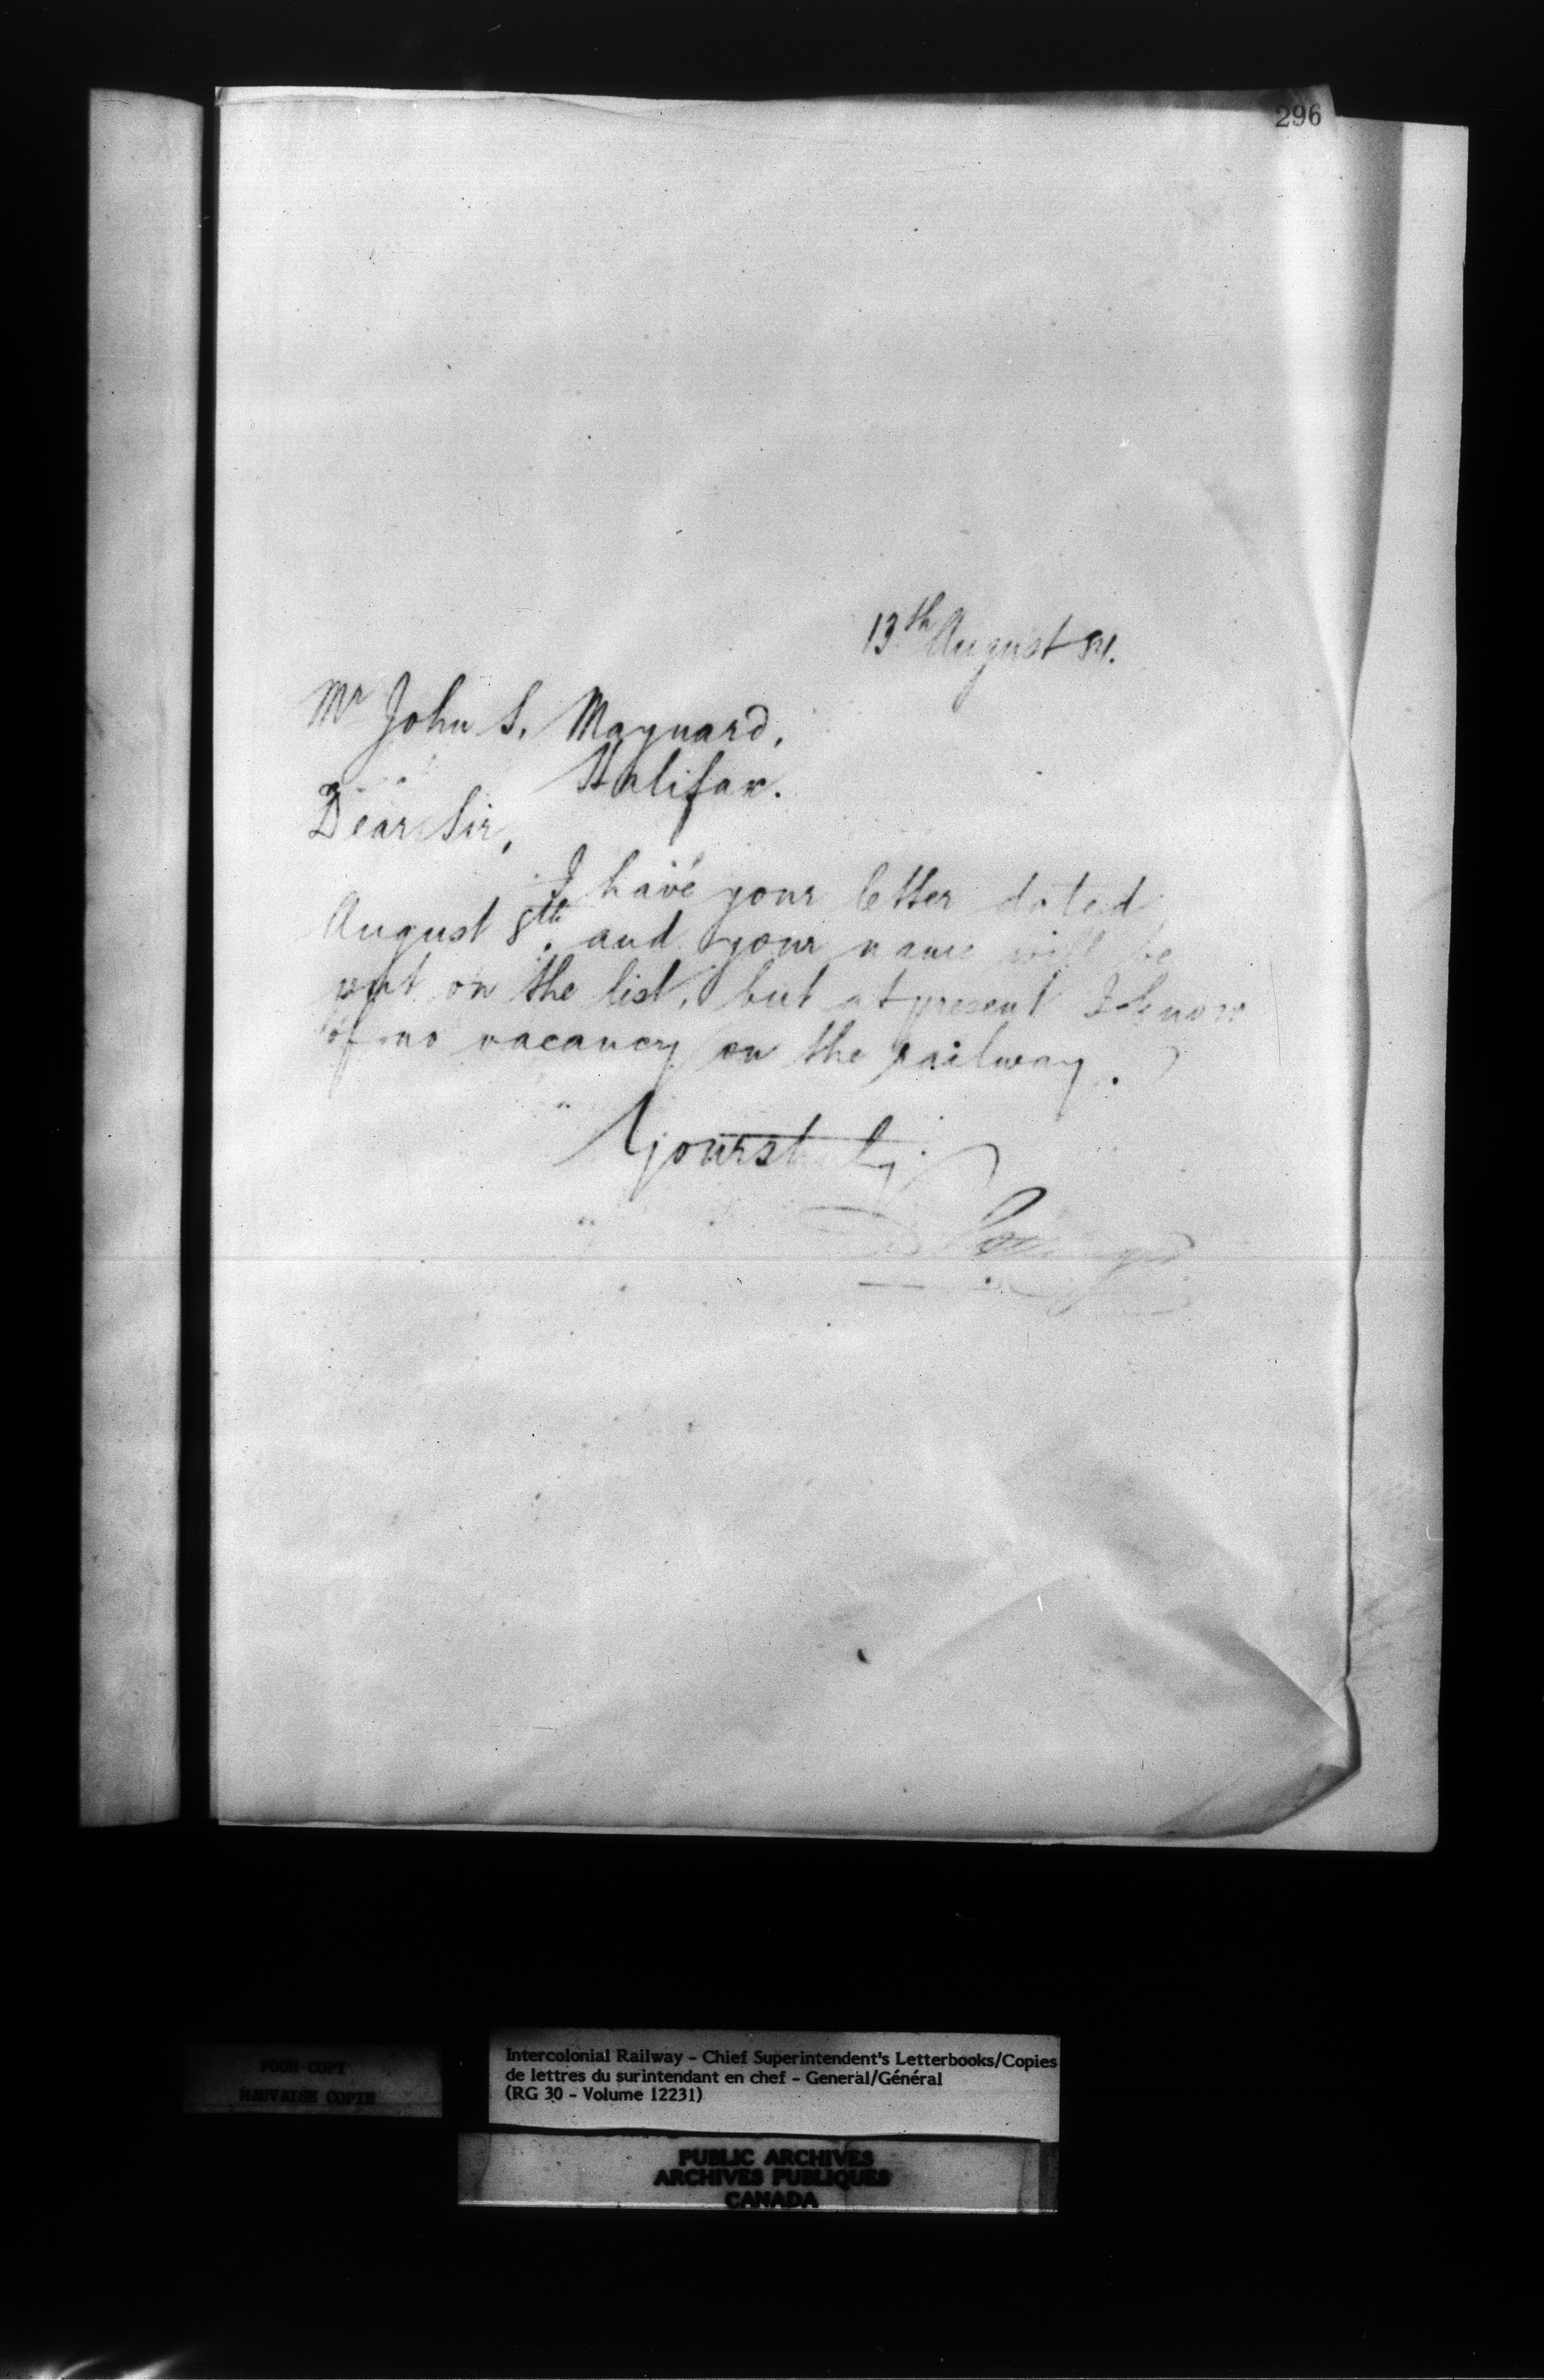 296
13th August 81.
Mr John S. Maynard,
Halifax.
Dear Sir,
I have your letter dated
August 8th. and your name will be
put on the list, but at present I know
of no vacancy on the railway.
Yours truly
D Pottinger
POOR COPY
MAUVAISE COPIE
Intercolonial Railway - Chief Superintendent's Letterbooks/Copies
de lettres du surintendant en chef - General/Général
(RG 30 - Volume 12231)
PUBLIC ARCHIVES
ARCHIVES PUBLIQUES
CANADA